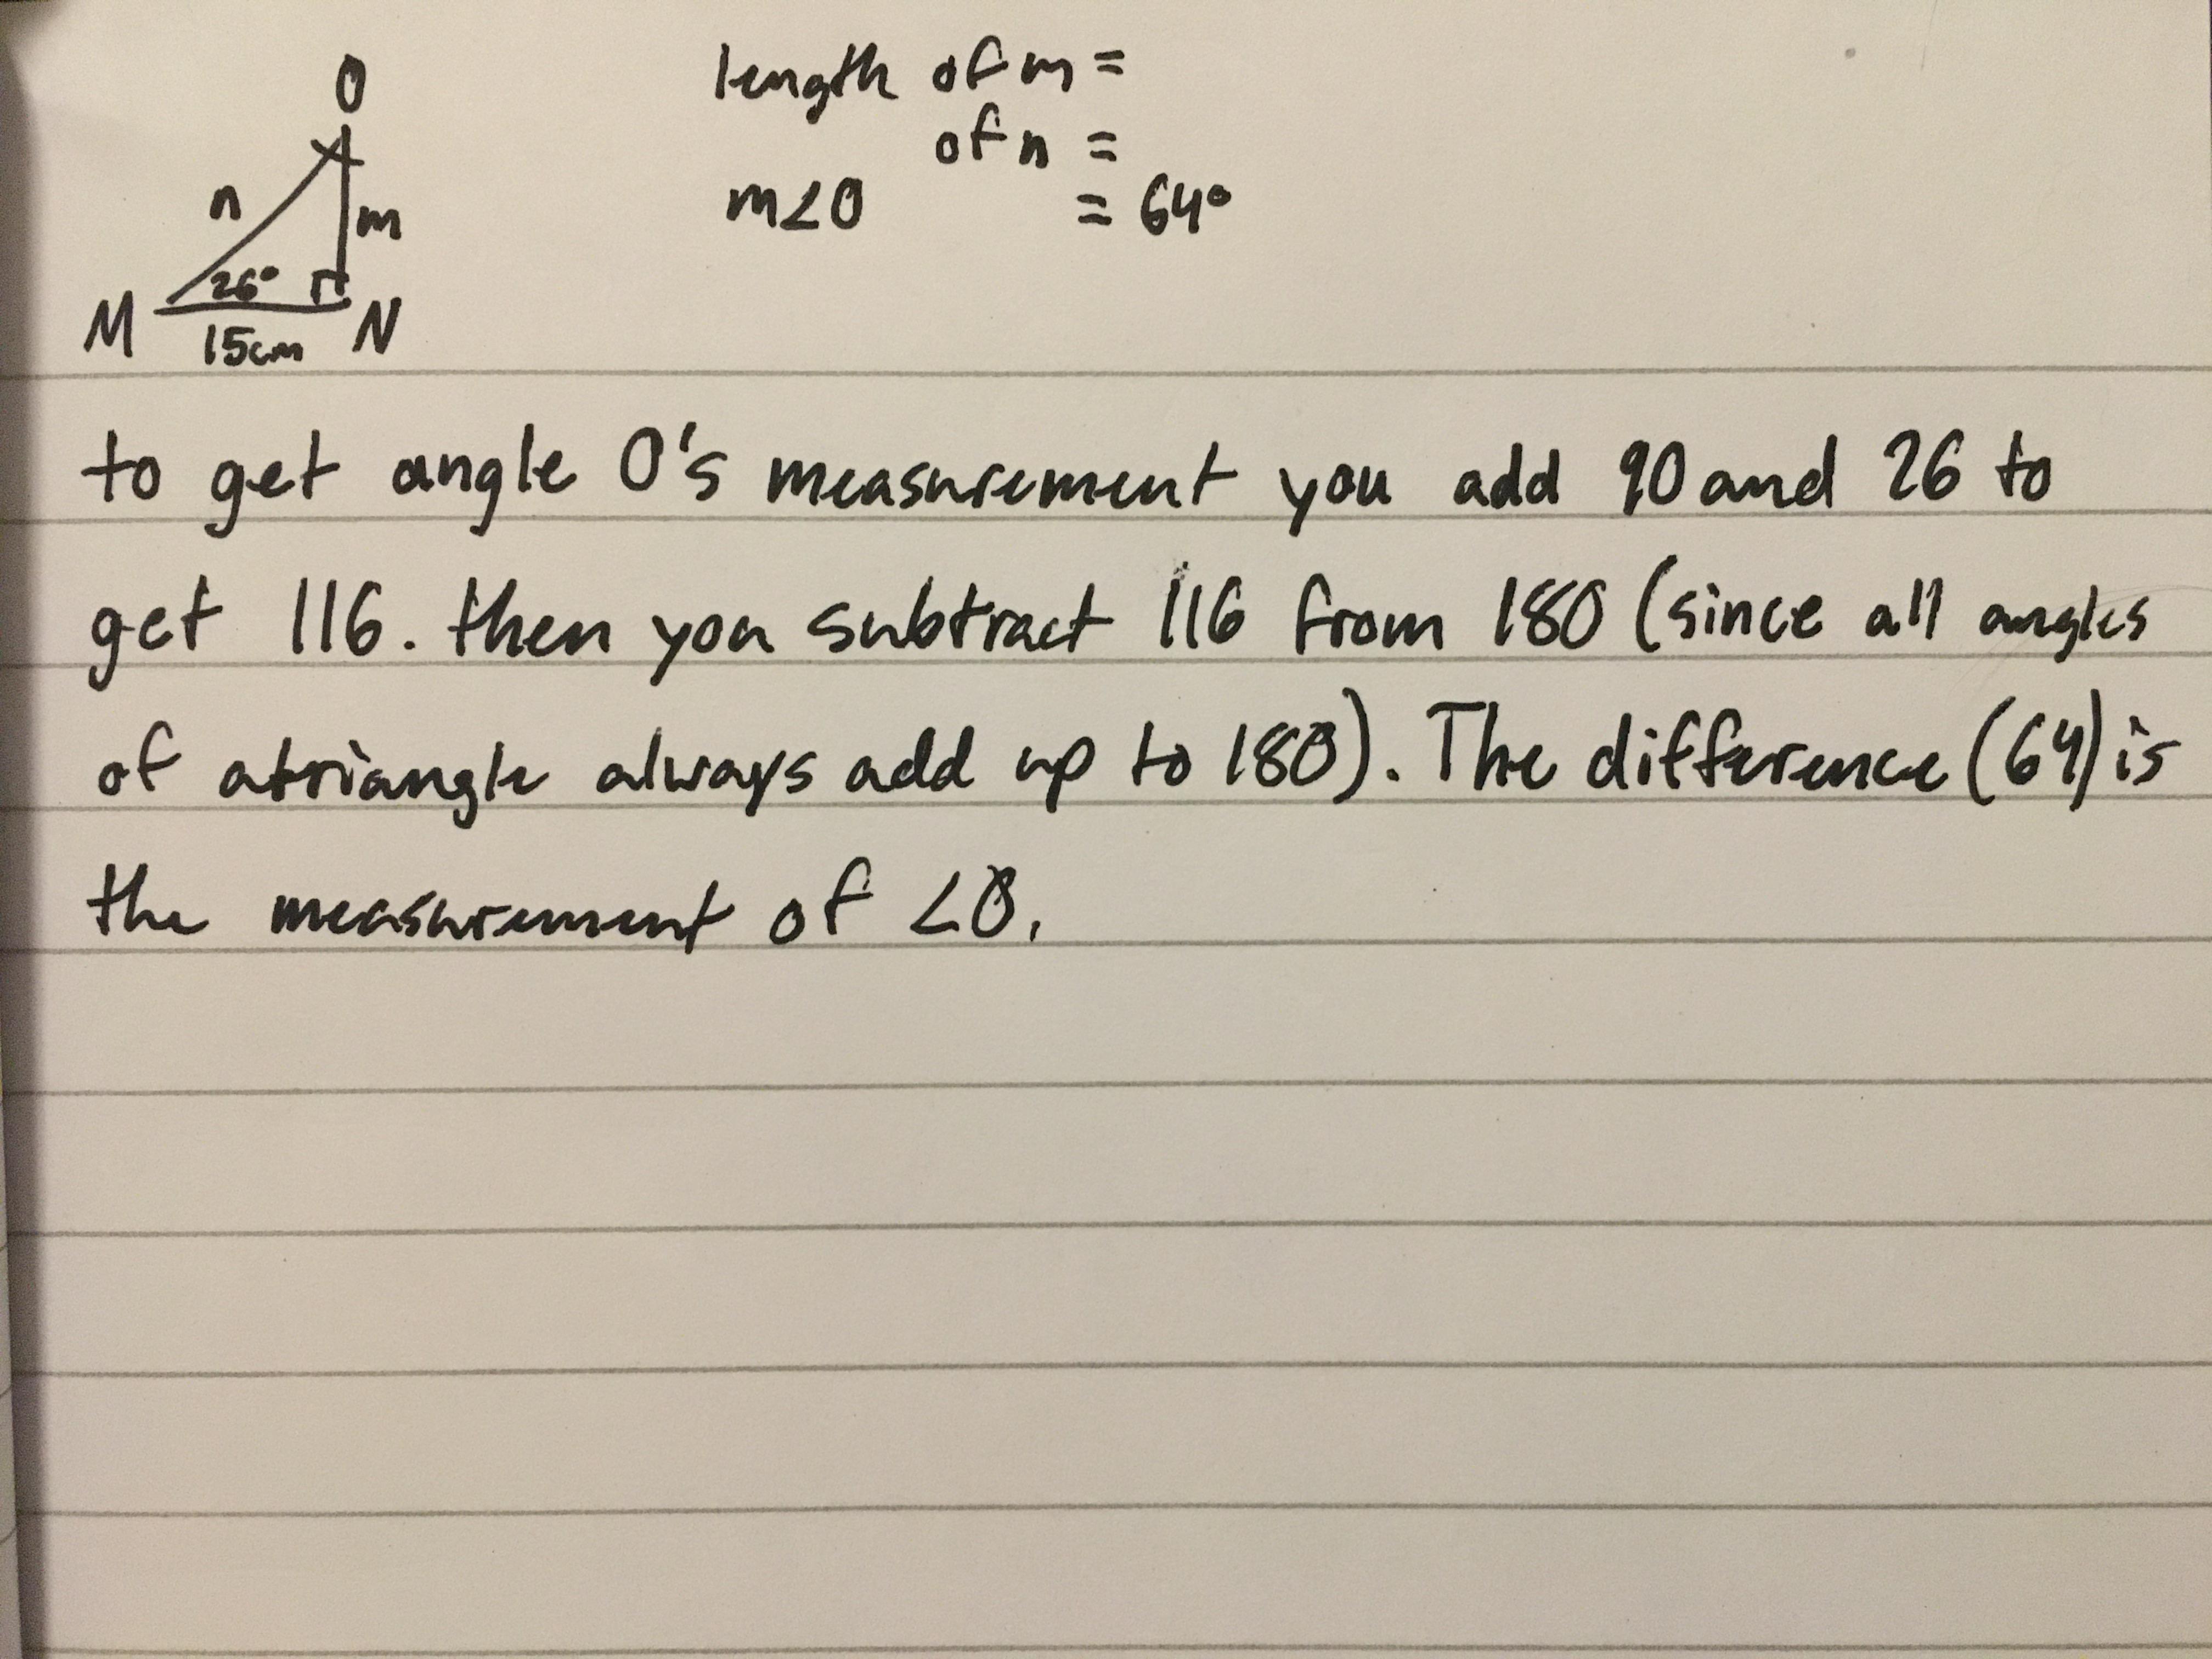 O
length of m =
of n =
n
m
m<O = 64°
26°
M
N
15cm
to get angle O's measurement you add 90 and 26 to
get 116. then you subtract 116 from 180 (since all angles
of atriangle always add up to 180). The difference (64) is
the measurement of <O.